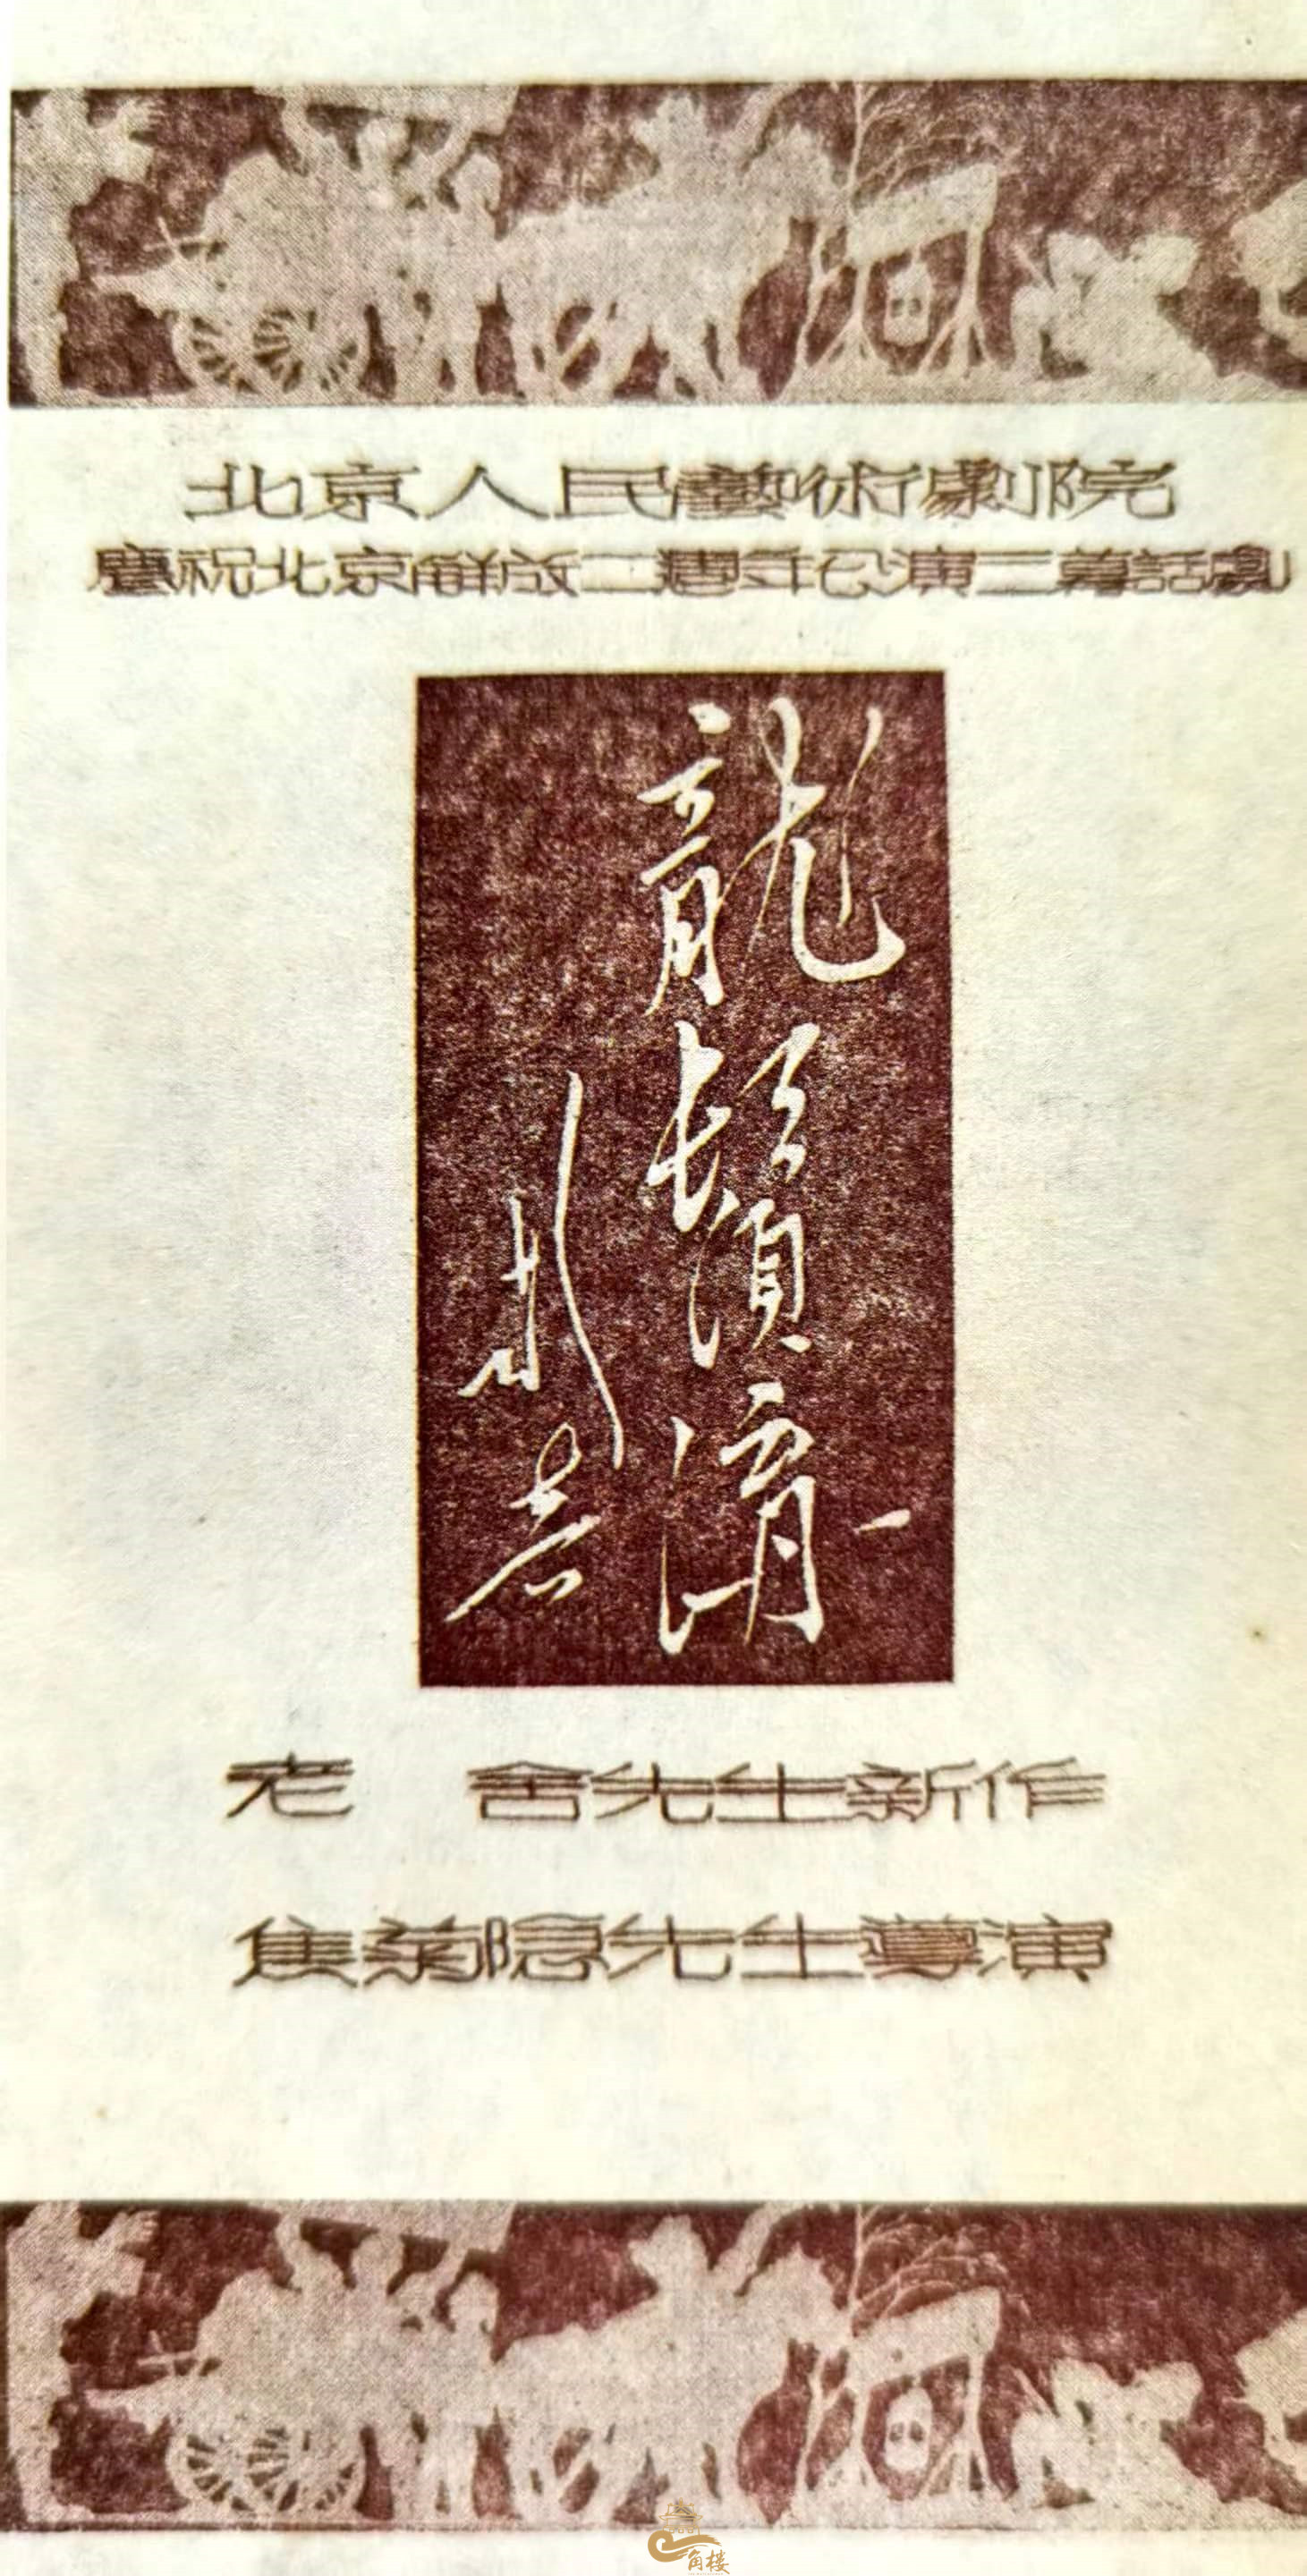 北京人民藝術劇院
慶祝北京解放二週年公演三幕話劇
龍鬚溝
老　舍先生新作
焦菊隱先生導演
角楼